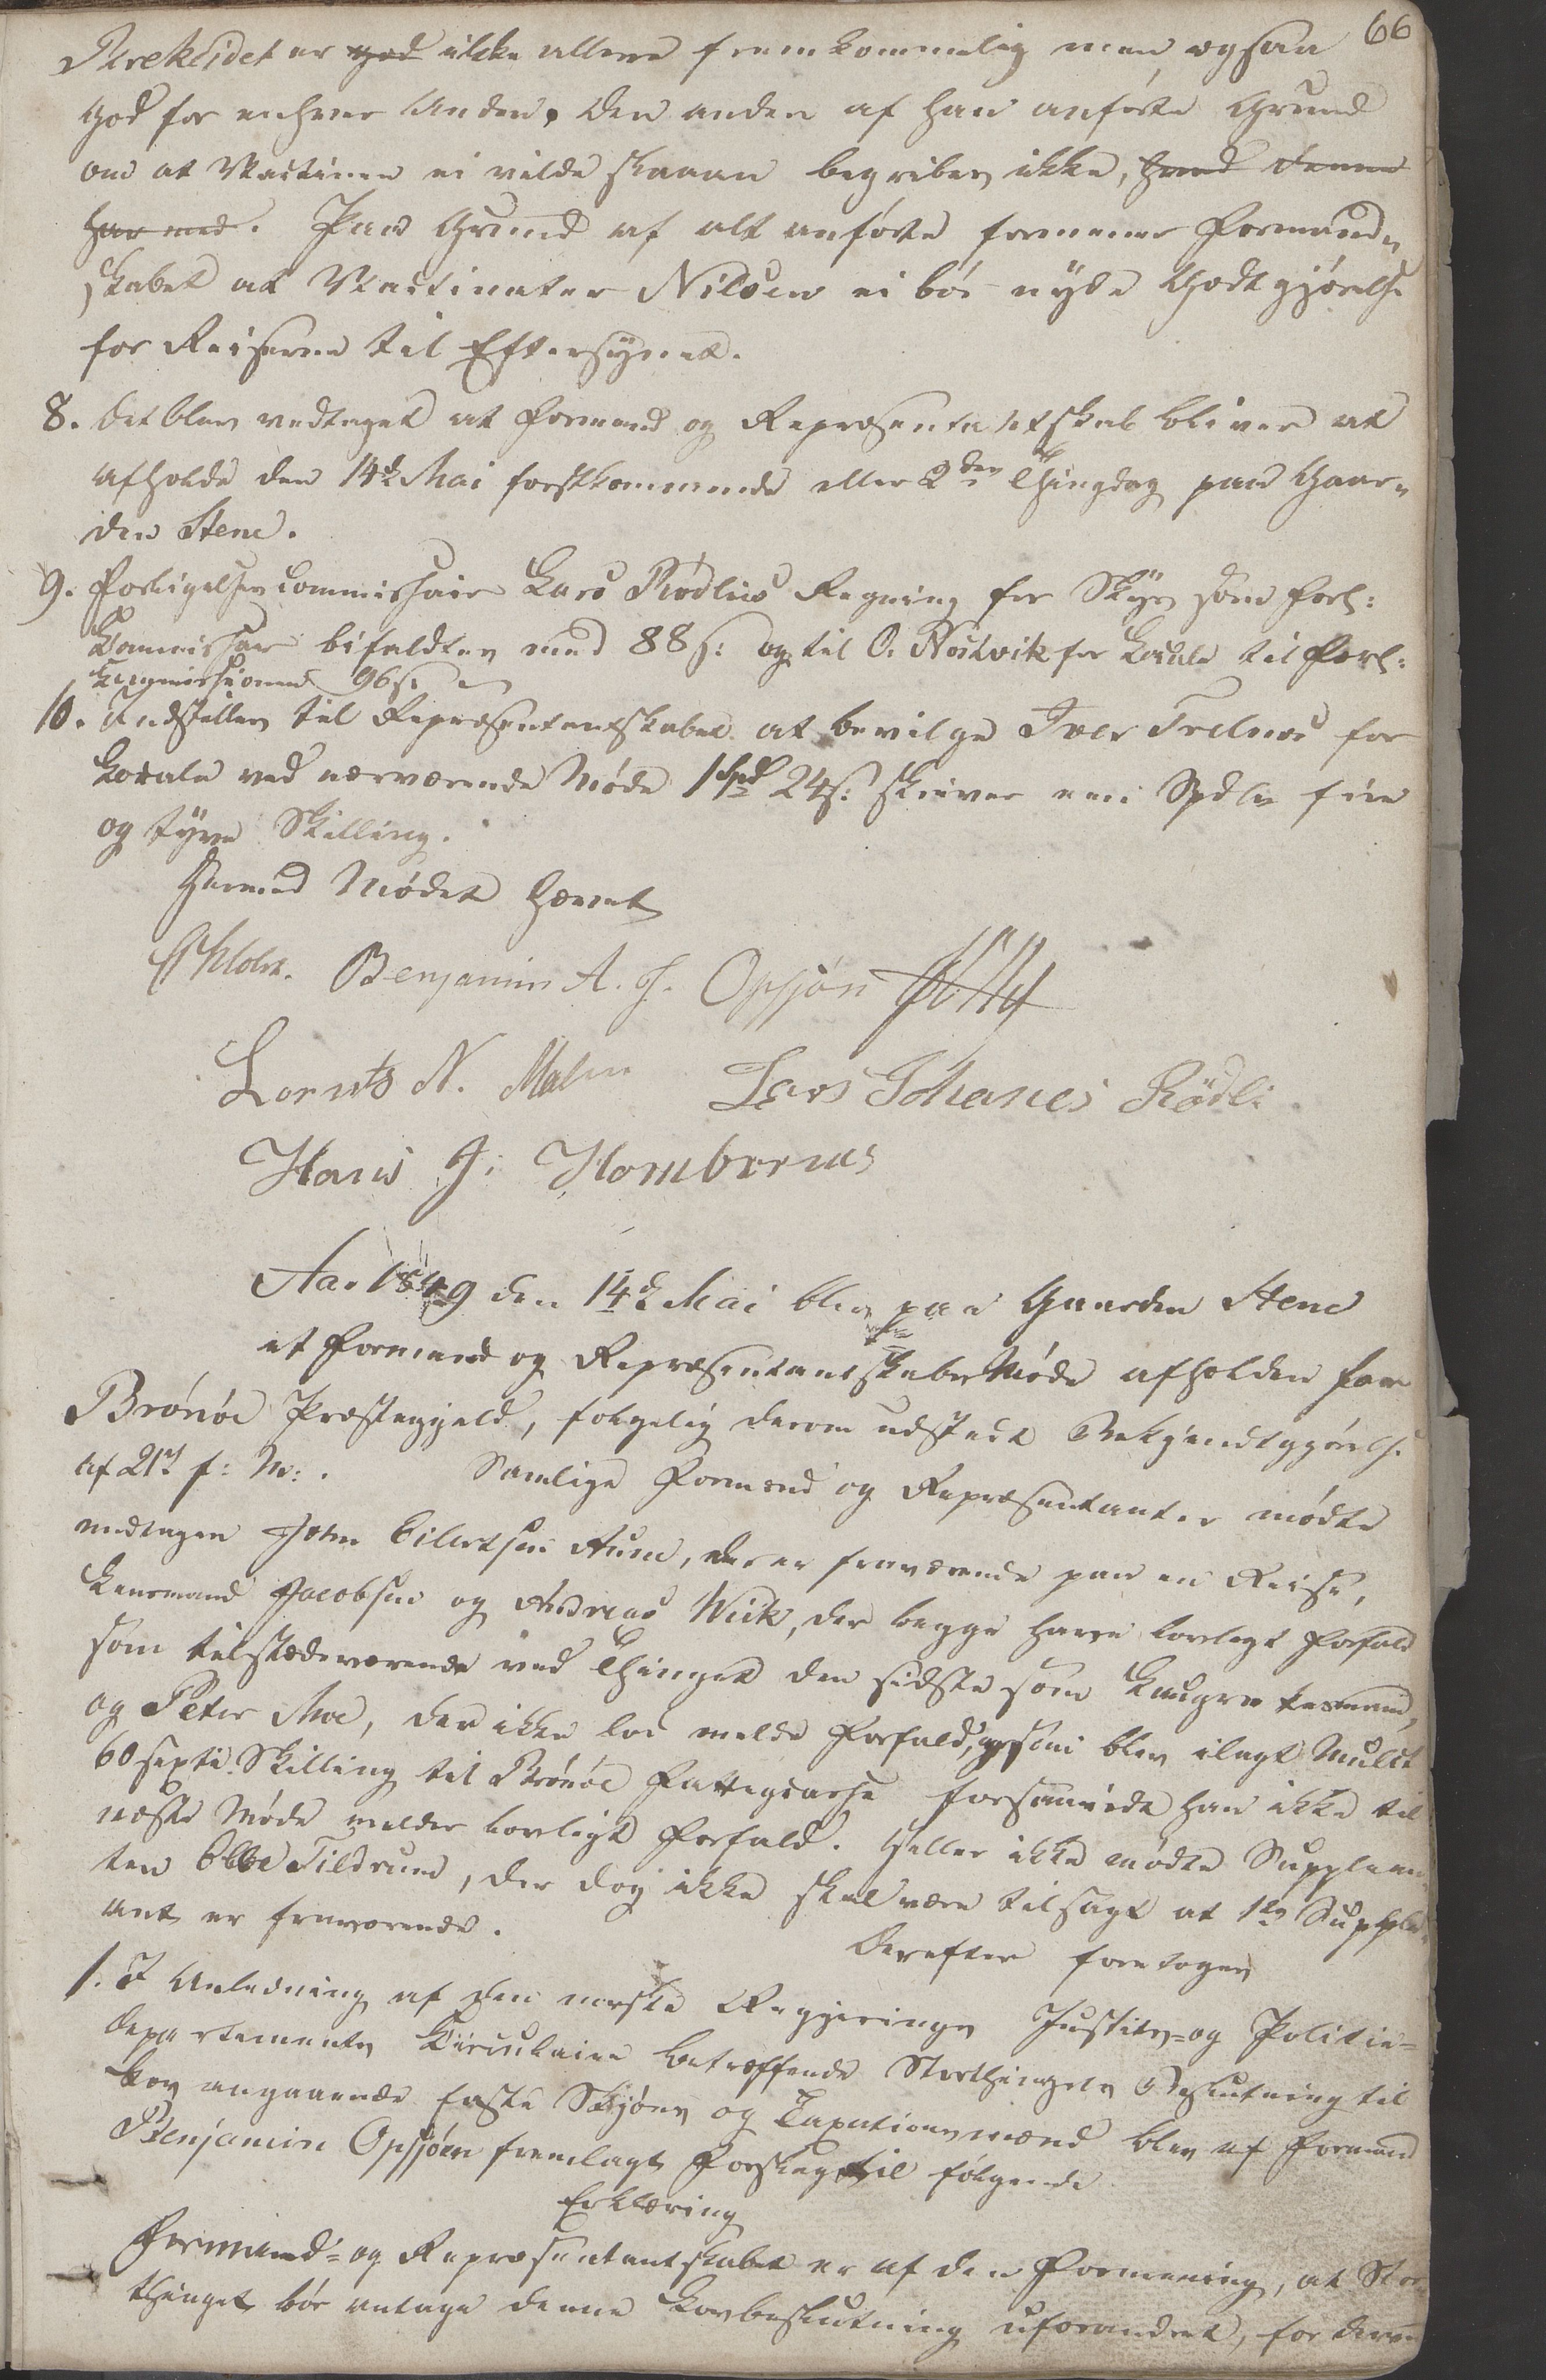 66
er god ikke allene fremkommelig men ogsaa
god for enhver Anden. Den anden af ham anførte Grund
om at Vaccinen ei vilde slaaan begribes ikke, hvad denne
har med. Paa Grund af alt anførte formener Formands-
skabet at Vaccinatør Nilsen ei bør nyde Godtgjørelse
for Reiserne til Eftersynet.
8. Det blev vedtaget at Formand og Repræsentantskab bliver at
afholde den 14de Mai førstkommende eller 2den Thingdag paa Gaar-
den Stene.
9. Forligelsescommissair Lars Rødlies Regning for Skyds som Forl:
Kommissair bifaldtes med 88 s: og til O. Nostvik for Locale til Forl:
Kommissionen 96 s:
10. Indstilles til Repræsentantskabet at bevilge Iver Trelnes for
Locale ved nærværende Møde 1 Spd 24 s: skriver een Spdlr fire
og tyve Skilling.
Hermed Mødet hævet
Benjamin A. J. Opsjøn
Lornts N. Malm Lars Johanes Rødli
Hans J. Hombornes
Aar 1849 den 14de Mai blev paa Gaarden Stene
et Formand og Repræsentantskabs Møde afholden for
Brønøe Præstegjeld, følgelig derom udstedt Bekjendtgjørelse
af 21de f: M:. Samtlige Formænd og Repræsentanter mødte
undtagen John Eilertsen Aune, der er fraværende paa en Reise,
Lensmand Jacobsen og Andreas Wiik, der begge have lovligt Forfald
som tilstædeværende ved Thinget den sidste som Laugrettesmand,
og Peter Moe, der ikke lod melde Forfald, og som blev ilagt Mulct
60 sexti Skilling til Brønøe Fattigcasse forsaavidt han ikke til
næste Møde melder lovligt Forfald. Heller ikke mødte Supplean-
ten Tildrum, der dog ikke skal være tilsagt at 1ste Supple-
ant er fraværende.
Derefter foretoges
1. I Anledning af den norske Regjerings Justits- og Politie-
Departements Circulaire betræffende Storthingets Beslutning til
Lov angaaende faste Skjøns og Taxationsmænd blev af Formand
Benjamin Opsjøen fremlagt Forslag til følgende
Erklæring
Formand- og Repræsentantskabet er af den Formening, at Stor
thinget bør antage denne Lovbeslutning uforandret, for